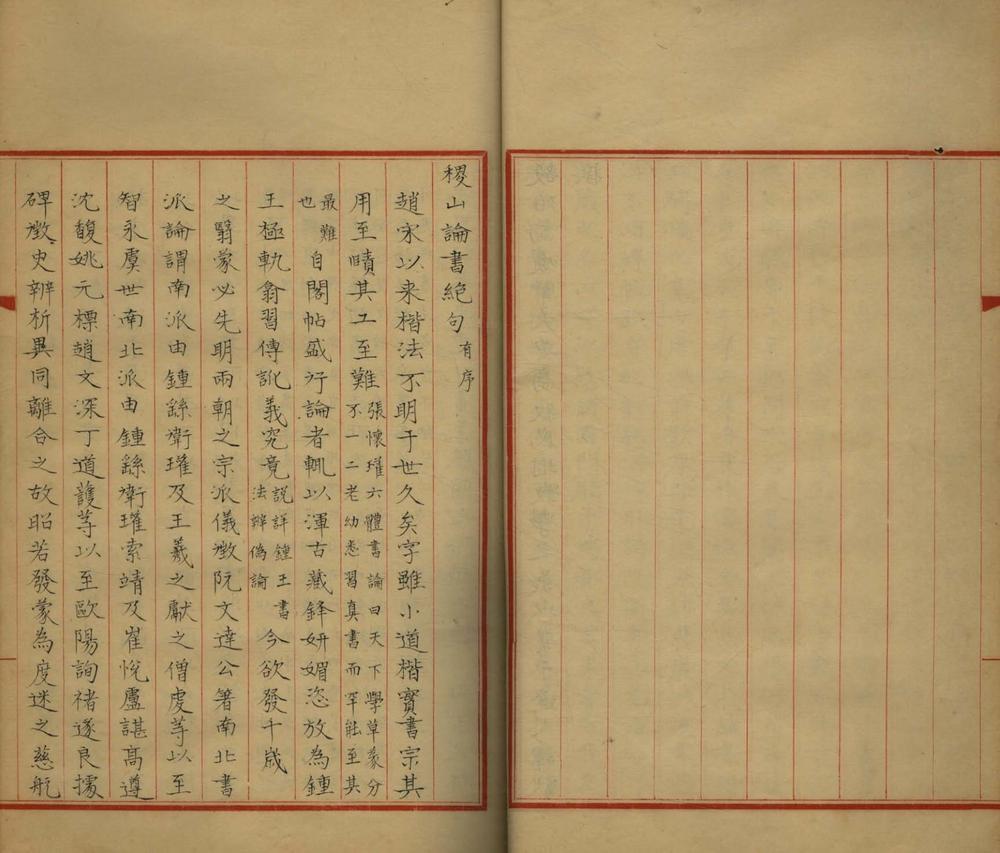 稷山論書絕句有序
趙宋以来楷法不明于世久矣字雖小道楷實書宗其
用至賾其工至難張懷瓘六體書論曰天下學草篆分不一二老幼悉習真書而罕能至其
最難也自閣帖盛行論者輒以渾古藏鋒妍媚恣放為鍾
王極軌翕習傳訛義究竟説詳鍾王書法辨偽論今欲發千歲
之翳蒙必先明兩朝之宗派儀徵阮文達公箸南北書
派論謂南派由鍾繇衛瓘及王羲之獻之僧虔等以至
智永虞世南北派由鍾繇衛瓘索靖及崔悅盧諶高遵
沈馥姚元標趙文深丁道護等以至歐陽詢褚遂良據
碑徵史辨析異同離合之故昭若發蒙為度迷之慈航